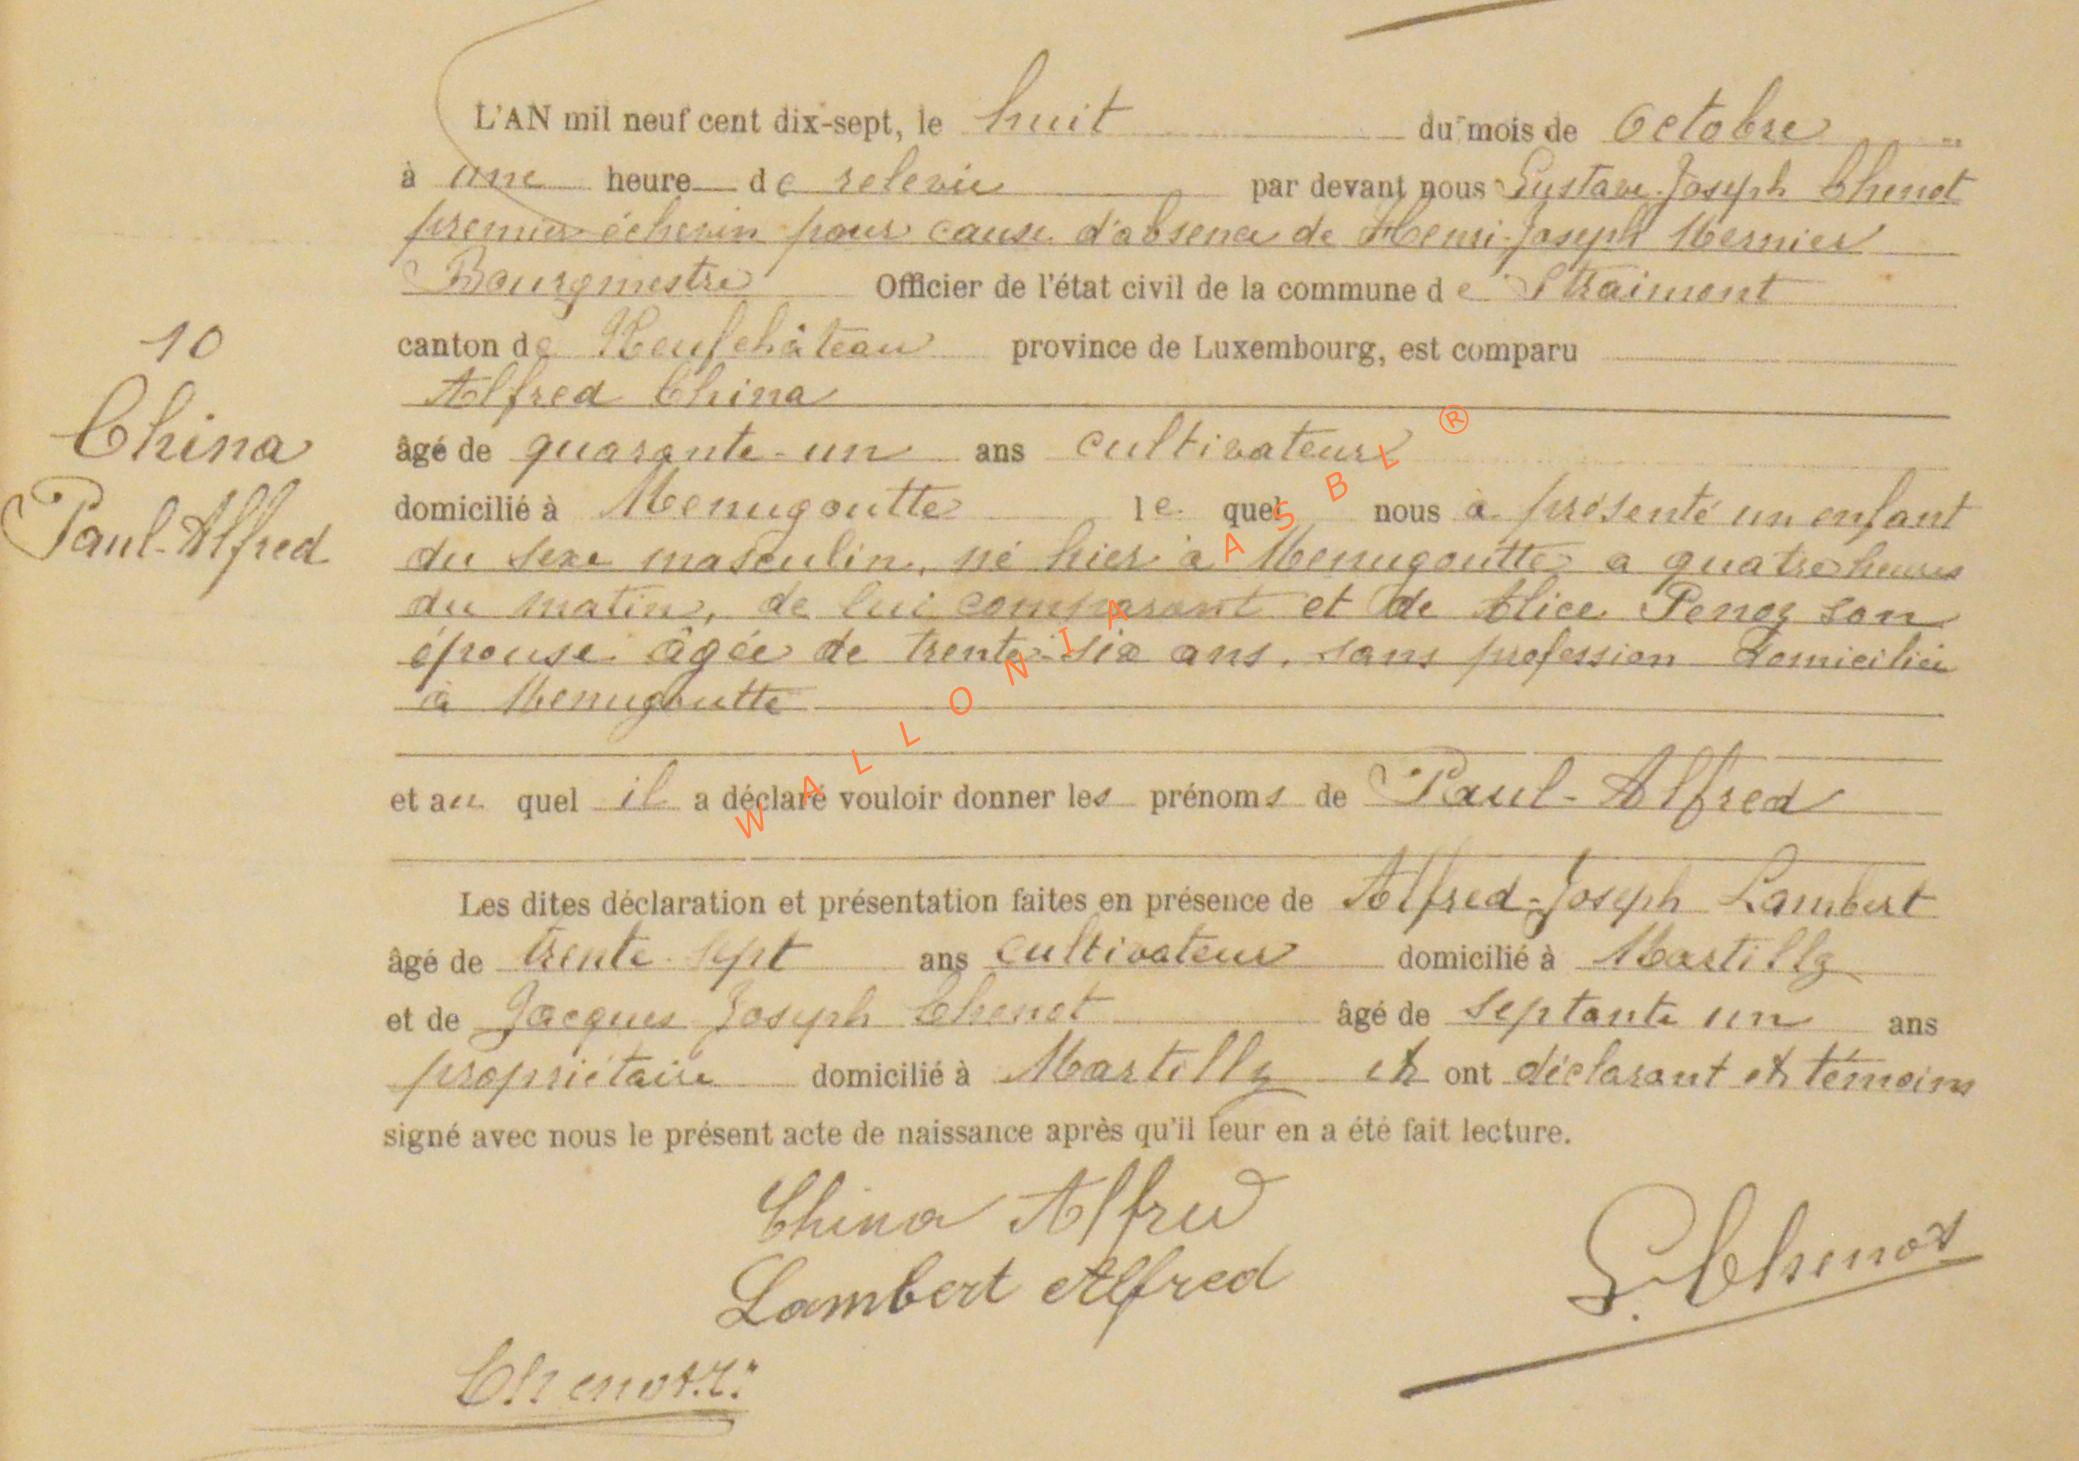 L'AN mil neuf cent dix-sept, le huit du mois de Octobre
à une heure de relevée par devant nous Gustave-Joseph Chenot
premier échevin pour cause d'absence de Henri-Joseph Mernier
Bourgmestre Officier de l'état civil de la commune de Straimont
canton de Neufchâteau province de Luxembourg, est comparu
Alfred China
10
China
Paul-Alfred
âgé de quarante-un ans cultivateur
domicilié à Menugoutte le quel nous a présenté un enfant
du sexe masculin, né hier à Menugoutte a quatre heures
du matin, de lui comparant et de Alice Penoy son
épouse âgée de trente-six ans, sans profession domiciliée
à Menugoutte
et au quel il a déclaré vouloir donner les prénoms de Paul-Alfred
Les dites déclaration et présentation faites en présence de Alfred-Joseph Lambert
âgé de trente-sept ans cultivateur domicilié à Martilly
et de Jacques Joseph Chenot âgé de septante un ans
propriétaire domicilié à Martilly et ont déclarant et témoins
signé avec nous le présent acte de naissance après qu'il leur en a été fait lecture.
China Alfred
Lambert Alfred
G. Chenot
Chenot J.
WALLONIA ASBL ®